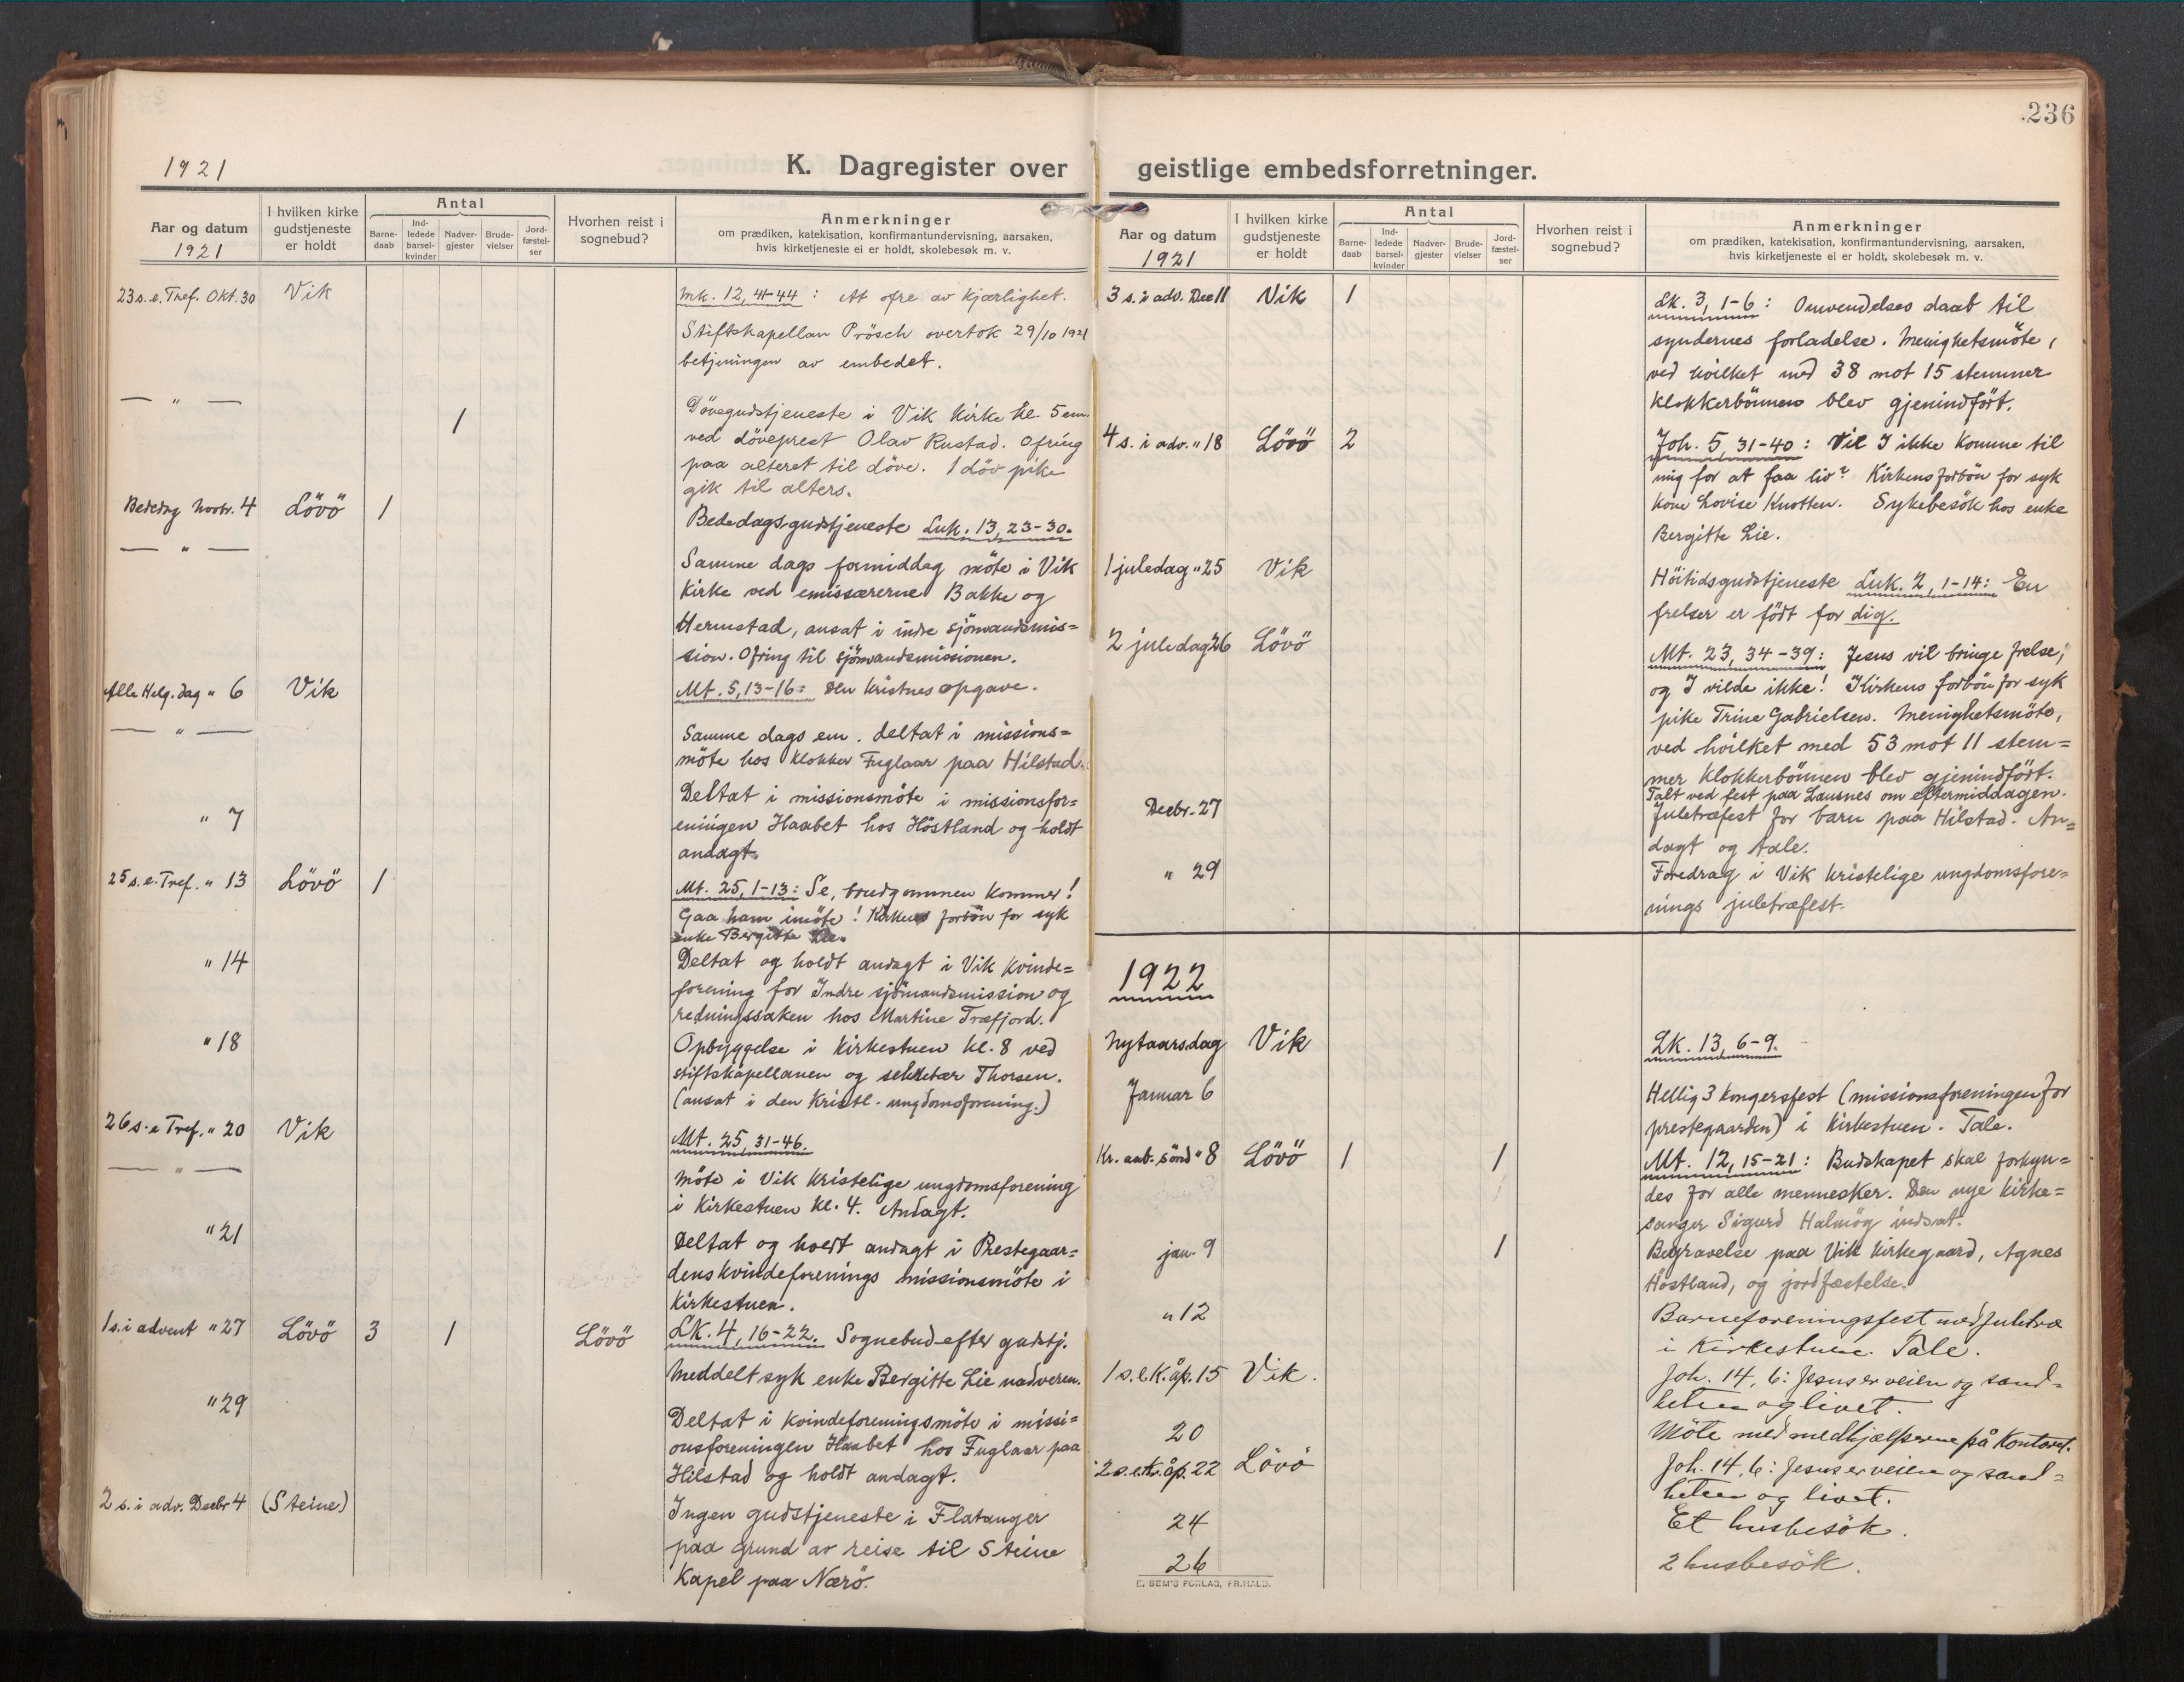 236
1921
K. Dagregister over geistlige embedsforretninger.
Aar og datum
1921
I hvilken kirke
gudstjeneste
er holdt
Antal
Barne-
daab
Ind-
ledede
barsel-
kvinder
Nadver-
gjester
Brude-
vielser
Jord-
fæstel-
ser
Hvorhen reist i
sognebud?
Anmerkninger
om prædiken, katekisation, konfirmantundervisning, aarsaken,
hvis kirketjeneste ei er holdt, skolebesøk m. v.
23 s. e. Tref. Okt. 30 Vik Mk. 12, 41-44: At ofre av kjærlighet.
Stiftskapellan Prösch overtok 29/10 1921
betjeningen av embedet.
— " — 1 Dövegudstjeneste i Vik Kirke kl. 5 em.
ved döveprest Olav Rustad. Ofring
paa alteret til döve. 1 döv pike
gik til alters.
Bededag Novbr. 4 Lövö 1 Bededagsgudstjeneste Luk. 13, 23-30.
— " — Samme dags formiddag möte i Vik
Kirke ved emissærerne Bakke og
Hermstad, ansat i indre sjömandsmis=
sion. Ofring til sjömandsmissionen.
Alle Helg. dag " 6 Vik Mt. 5, 13-16: Den kristnes opgave.
— " — Samme dags em. deltat i missions=
möte hos klokker Fuglaar paa Hilstad.
" 7 Deltat i missionsmöte i missionsfor=
eningen Haabet hos Höstland og holdt
andagt.
25 s. e. Tref. " 13 Lövö 1 Mt. 25, 1-13: Se, brudgommen kommer!
Gaa ham imöte! Kirkens forbön for syk
enke Bergitte Lie.
" 14 Deltat og holdt andagt i Vik kvinde=
forening for Indre sjömandsmission og
redningssaken hos Martine Træfjord.
" 18 Opbyggelse i Kirkestuen kl. 8 ved
stiftskapellanen og sekretær Thorsen.
(ansat i den Kristl. ungdomsforening.)
26 s. e Tref. " 20 Vik Mt. 25, 31-46.
— " — Möte i Vik Kristelige ungdomsforening
i Kirkestuen kl. 4. Andagt.
" 21 Deltat og holdt andagt i Prestegaar=
dens kvindeforenings missionsmöte i
Kirkestuen.
1 s. i advent " 27 Lövö 3 1 Lövö LK. 4, 16-22. Sognebud efter gudstj.
Meddelt syk enke Bergitte Lie nadveren.
" 29 Deltat i kvindeforeningsmöte i missi=
onsforeningen Haabet hos Fuglaar paa
Hilstad og holdt andagt.
2 s. i adv. Decbr 4 (Steine) Ingen gudstjeneste i Flatanger
paa grund av reise til Steine
Kapel paa Nærö.
Aar og datum
1921
I hvilken kirke
gudstjeneste
er holdt
Antal
Barne-
daab
Ind-
ledede
barsel-
kvinder
Nadver-
gjester
Brude-
vielser
Jord-
fæstel-
ser
Hvorhen reist i
sognebud?
Anmerkninger
om prædiken, katekisation, konfirmantundervisning, aarsaken,
hvis kirketjeneste ei er holdt, skolebesøk m. v.
3 s. i adv. Dec 11 Vik 1 Lk. 3, 1-6: Omvendelses daab til
syndernes forladelse. Menighetsmöte,
ved hvilket med 38 mot 15 stemmer
klokkerbönnen blev gjenindfört.
4 s. i adv. " 18 Lövö 2 Joh. 5, 31-40: Vil I ikke komme til
mig for at faa liv? Kirkens forbön for syk
kone Lovise Knotten. Sykebesök hos enke
Bergitte Lie.
1 juledag " 25 Vik Höitidsgudstjeneste Luk. 2, 1-14: En
frelser er födt for dig.
2 juledag 26 Lövö Mt. 23, 34-39: Jesus vil bringe frelse,
og I vilde ikke! Kirkens forbön for syk
pike Trine Gabrielsen. Menighetsmöte,
ved hvilket med 53 mot 11 stem=
mer klokkerbönnen blev gjenindfört.
Talt ved fest paa Lausnes om eftermiddagen.
Decbr. 27 Juletræfest for barn paa Hilstad. An=
dagt og tale.
" 29 Foredrag i Vik kristelige ungdomsfore=
nings juletræfest.
1922
Nytaarsdag Vik Lk. 13, 6-9.
Januar 6 Hellig 3 kongersfest (missionsforeningen for
prestegaarden) i Kirkestuen. Tale.
Kr. aab. sönd " 8 Lövö 1 1 Mt. 12, 15-21: Budskapet skal forkyn=
des for alle mennesker. Den nye kirke=
sanger Sigurd Halmög indsat.
jan. 9 1 Begravelse paa Vik Kirkegaard, Agnes
Höstland, og jordfæstelse.
" 12 Barneforeningsfest med juletræ
i Kirkestuen. Tale.
1 s. e. K. åp. 15 Vik. Joh. 14, 6: Jesus er veien og sand=
heten og livet.
20 Möte med medhjælperne på Kontoret.
2 s. e. K. åp. 22 Lövö Joh. 14, 6: Jesus er veien og sand=
heten og livet.
24 Et husbesök.
26 2 husbesök.
E. SEM'S FORLAG, FR.HALD.